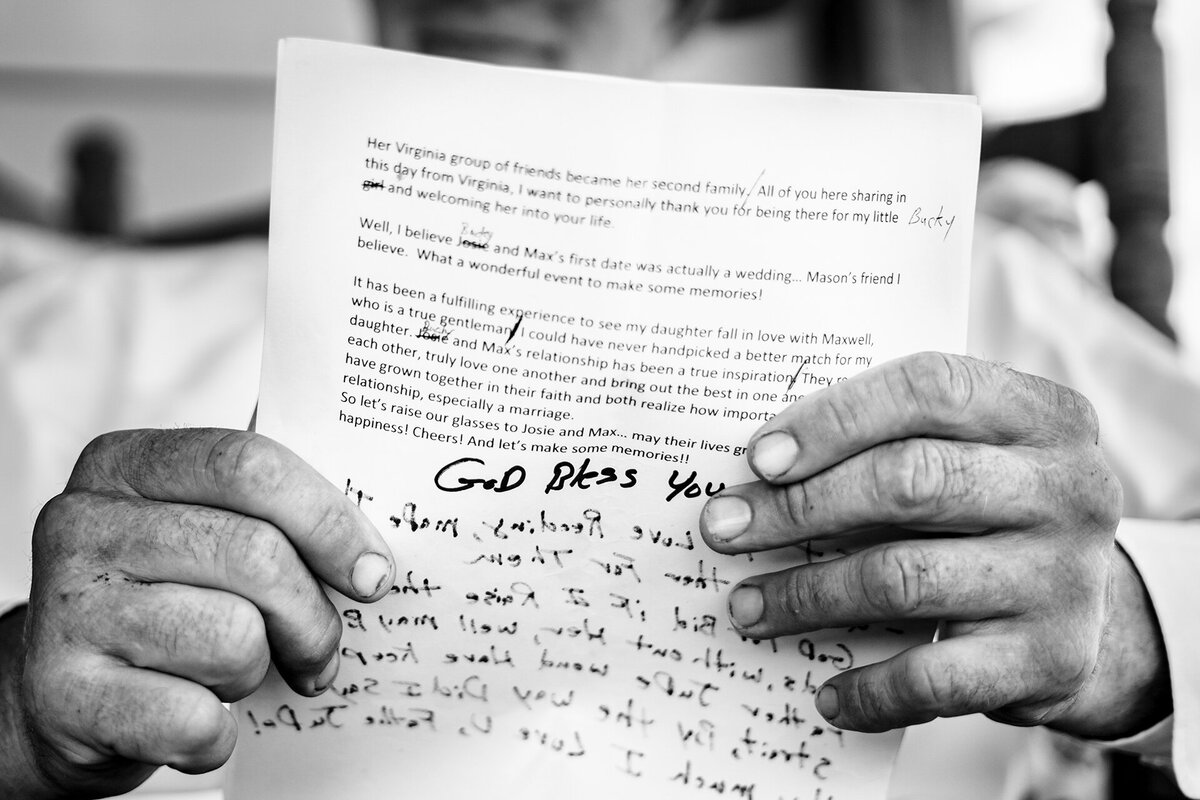 Her Virginia group of friends became her second family/ All of you here sharing in
this day from Virginia, I want to personally thank you for being there for my little Bucky
girl and welcoming her into your life.
Bucky
Well, I believe Josie and Max's first date was actually a wedding... Mason's friend I
believe. What a wonderful event to make some memories!
It has been a fulfilling experience to see my daughter fall in love with Maxwell,
who is a true gentleman/ I could have never handpicked a better match for my
Bucky
daughter. Josie and Max's relationship has been a true inspiration/ They
each other, truly love one another and bring out the best in one
have grown together in their faith and both realize how
relationship, especially a marriage.
So let's raise our glasses to Josie and Max... may their lives
happiness! Cheers! And let's make some memories!!
GOD Bless You
Love Reading, maDe
then For Them
GOD Bid if I Raise the
without Her, well may B
JuDe woud Have Keep
strait, By the way Did I Say
much I Love U, Father JuDe!